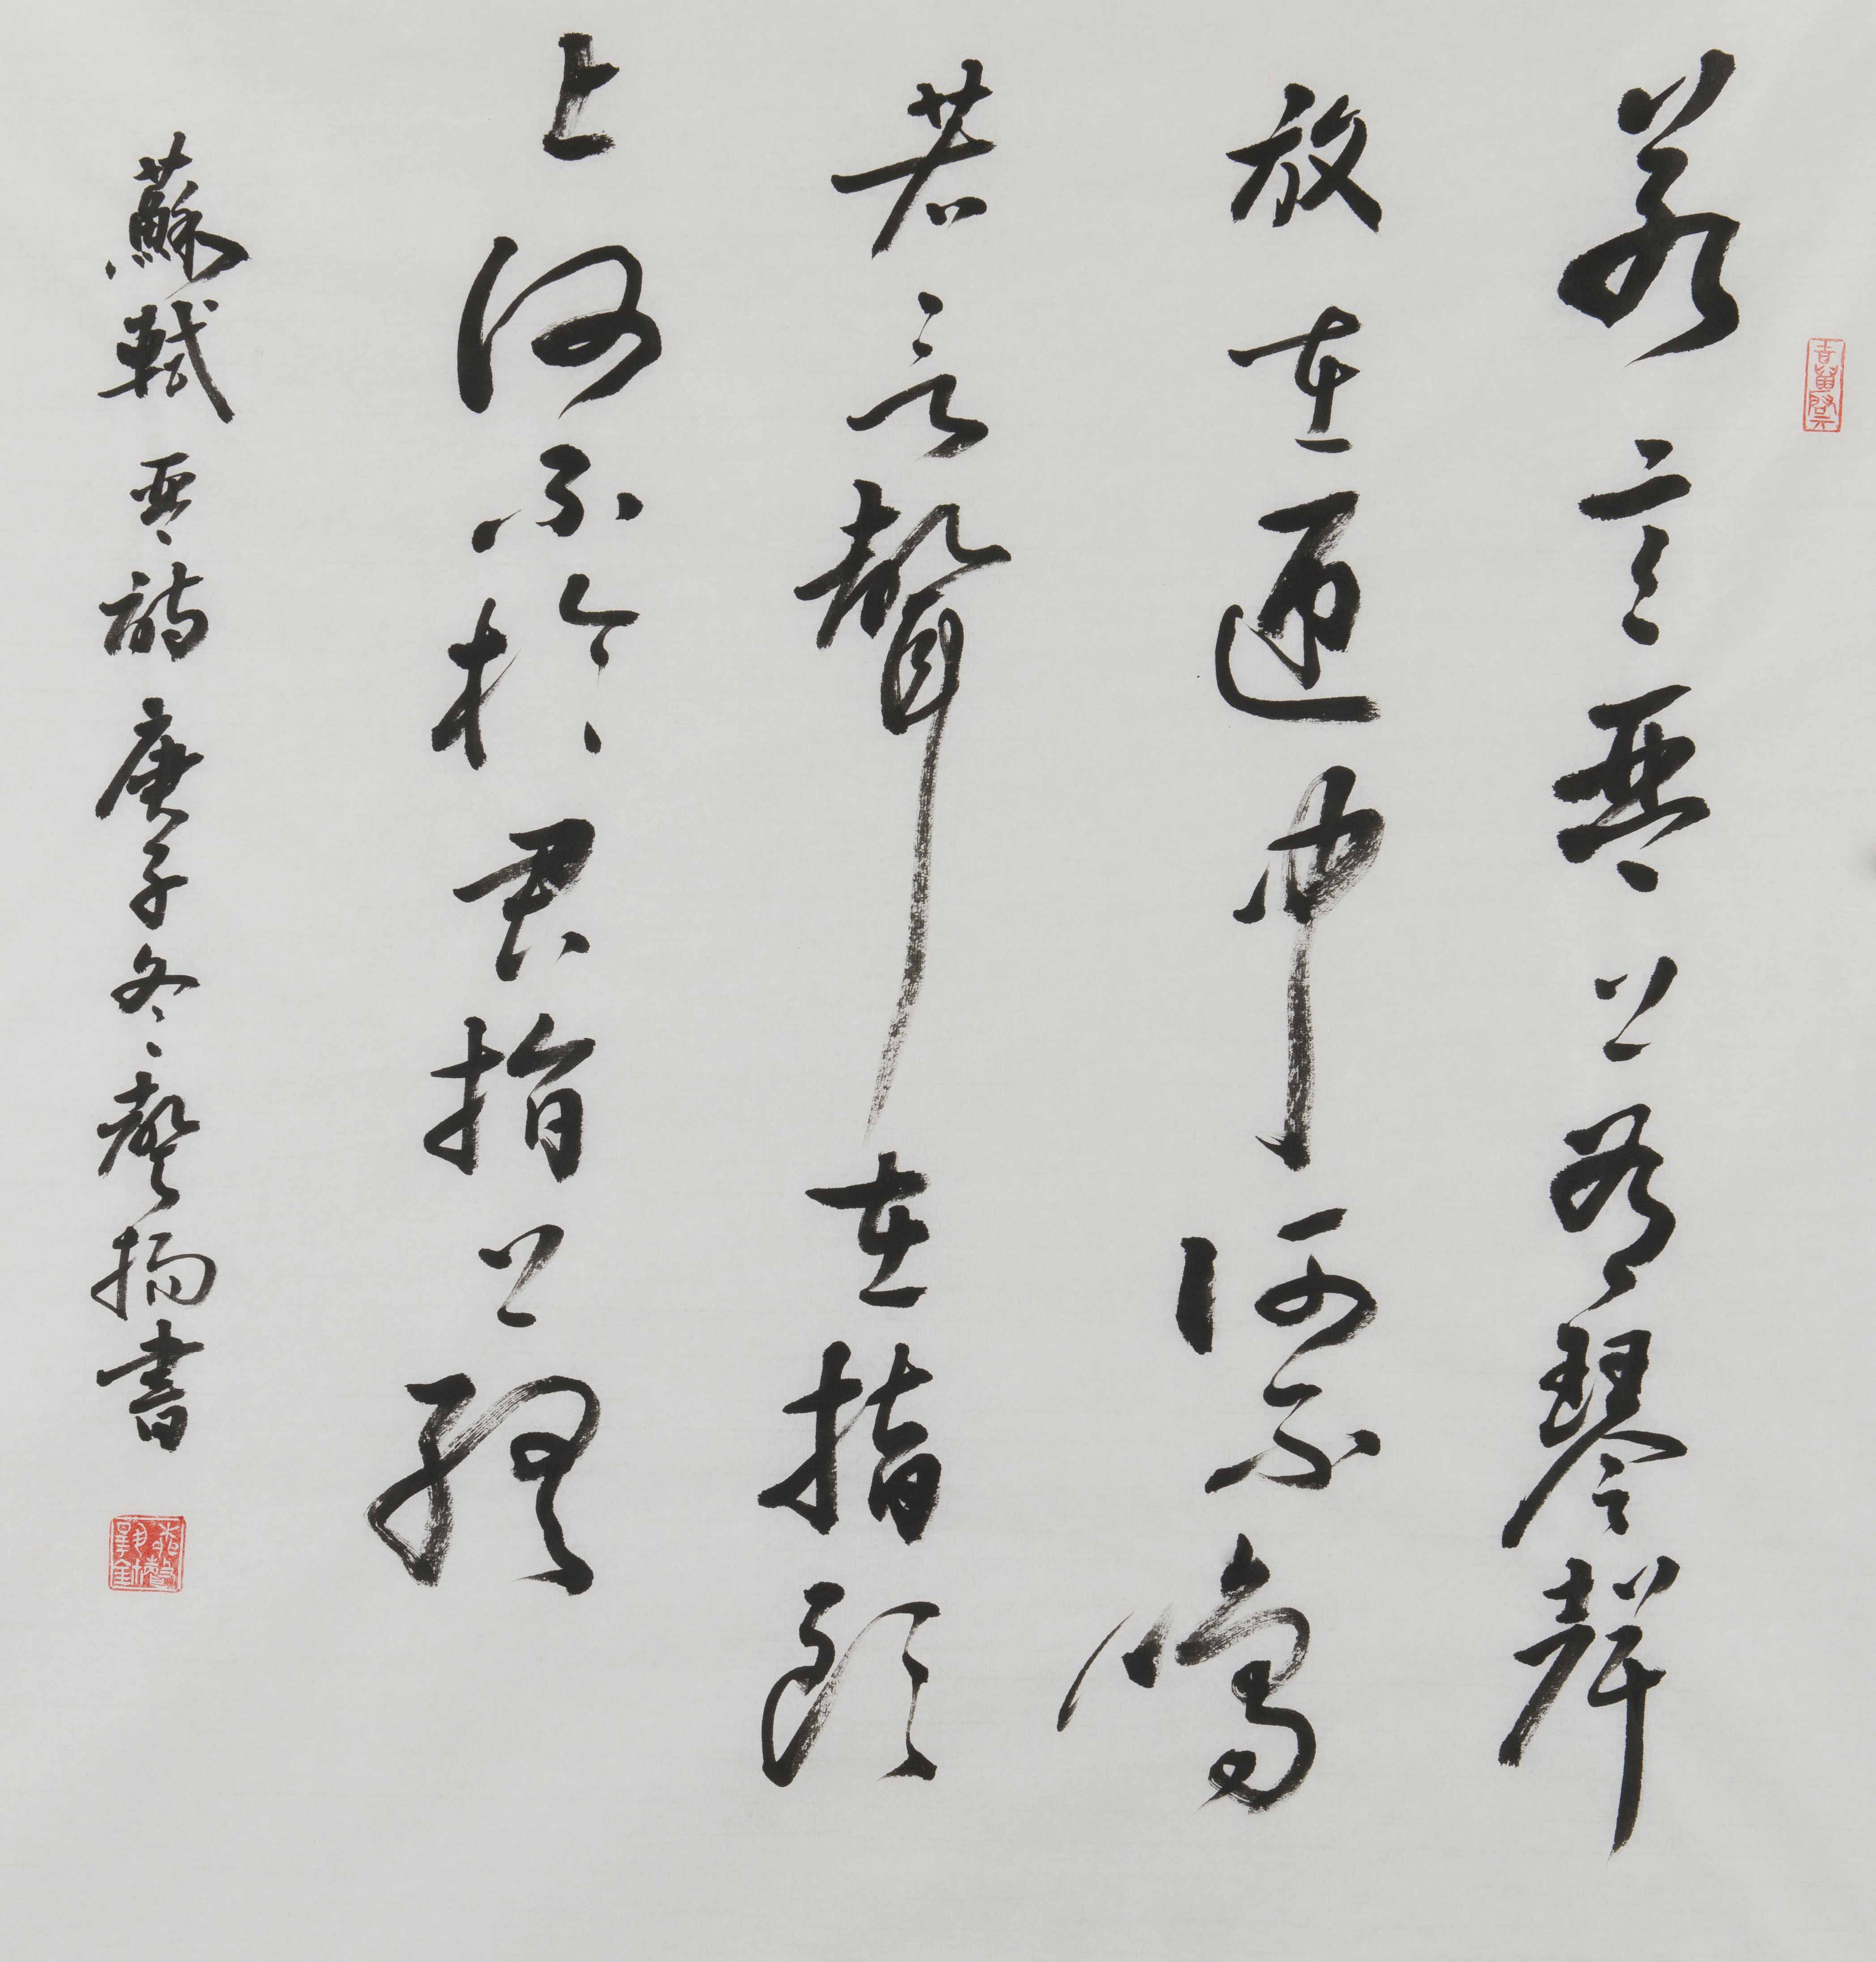 若言琴上有琴聲
放在匣中何不鳴
若言聲在指頭
上何不於君指上聽
蘇軾琴詩庚子冬聲揚書